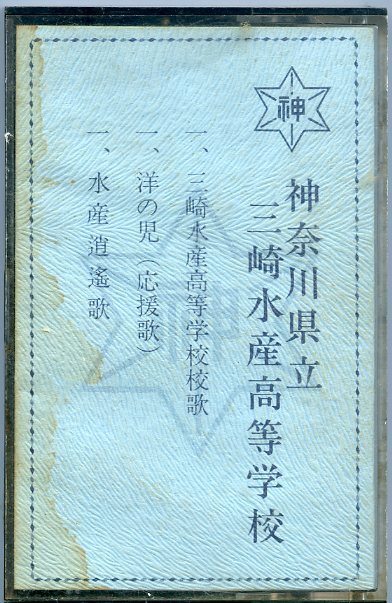 神
神奈川県立
三崎水産高等学校
一、三崎水産高等学校校歌
一、洋の児（応援歌）
一、水産逍遙歌